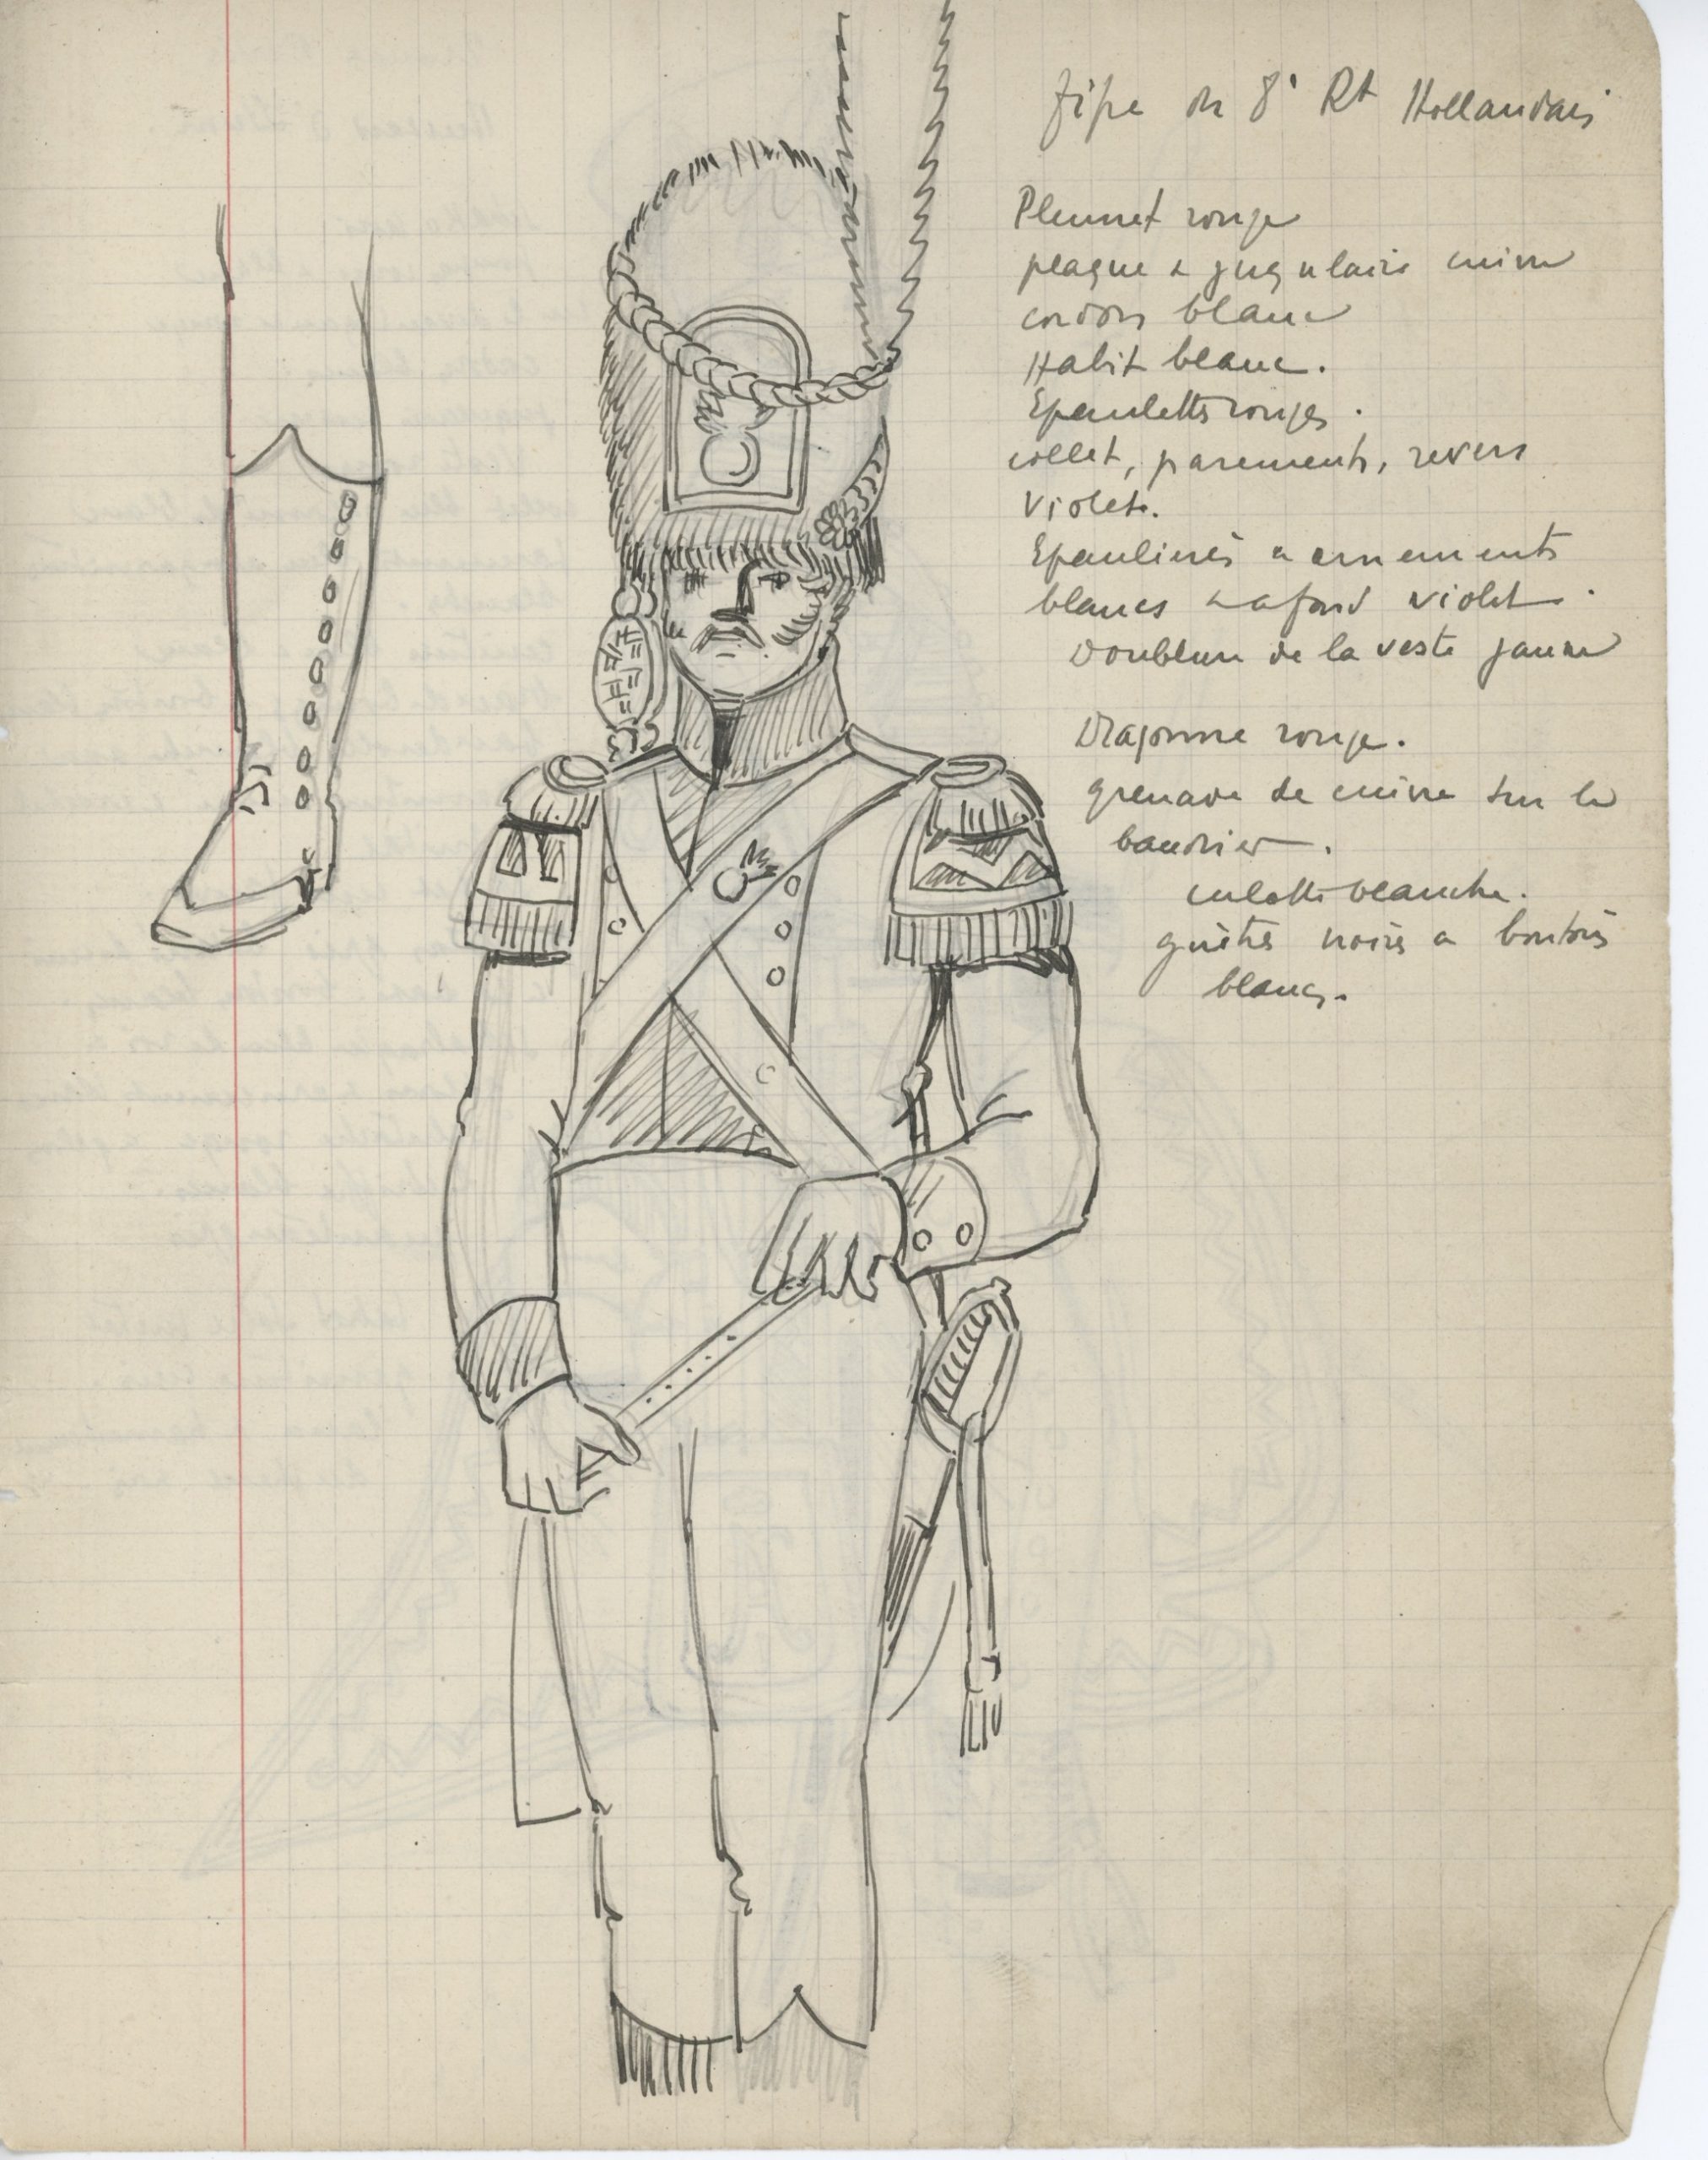 fifre du 8e Rt Hollandais
Plumet rouge
plaque & jugulaire cuivre
cordons blanc
Habit blanc.
Epaulettes rouges.
collet, parements, revers
violet.
Epaulières a ornements
blancs a fond violet.
Doublure de la veste jaune
Dragonne rouge.
grenade de cuivre sur le
baudrier.
culotte blanche.
guêtres noires a boutons
blancs.